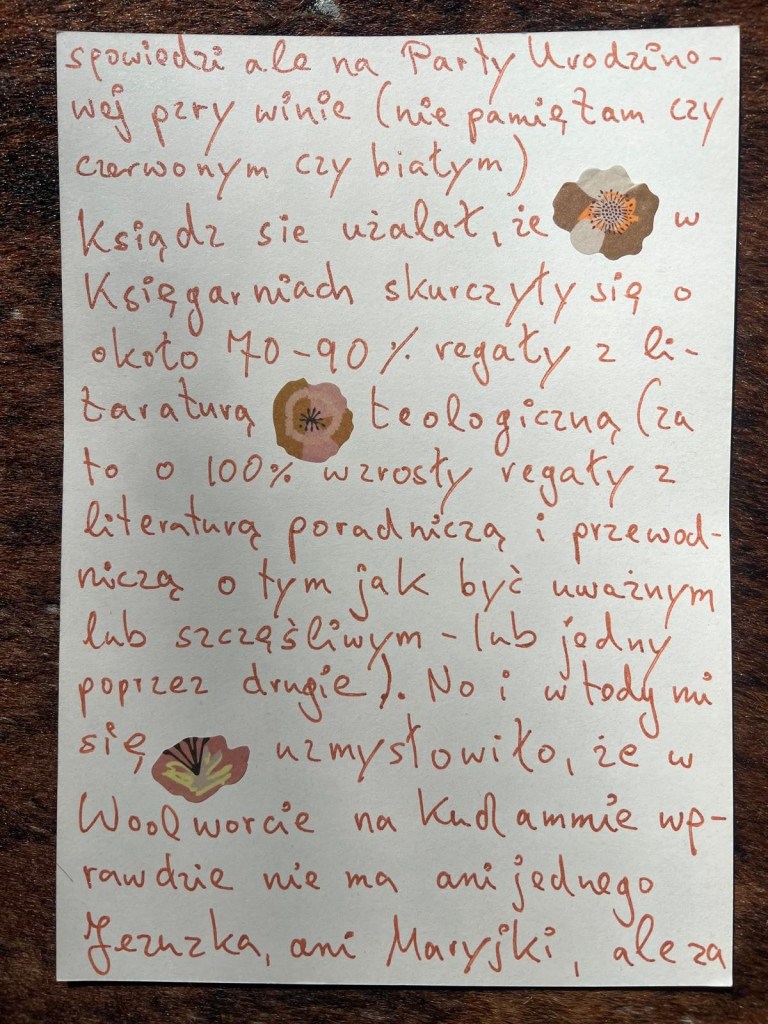 spowiedzi ale na Party Urodzino-
wej przy winie (nie pamiętam czy
czerwonym czy białym)
Ksiądz sie użalał, że w
Księgarniach skurczyły się o
około 70-90% regały z li-
taraturą teologiczną (za
to o 100% wzrosły regały z
literaturą poradniczą i przewod-
niczą o tym jak być uważnym
lub szczęśliwym - lub jedny
poprzez drugie). No i w tody mi
się uzmysłowiło, że w
Woolworcie na Kudlammie wp-
rawdzie nie ma ani jednego
Jezuzka, ani Maryjki, ale za